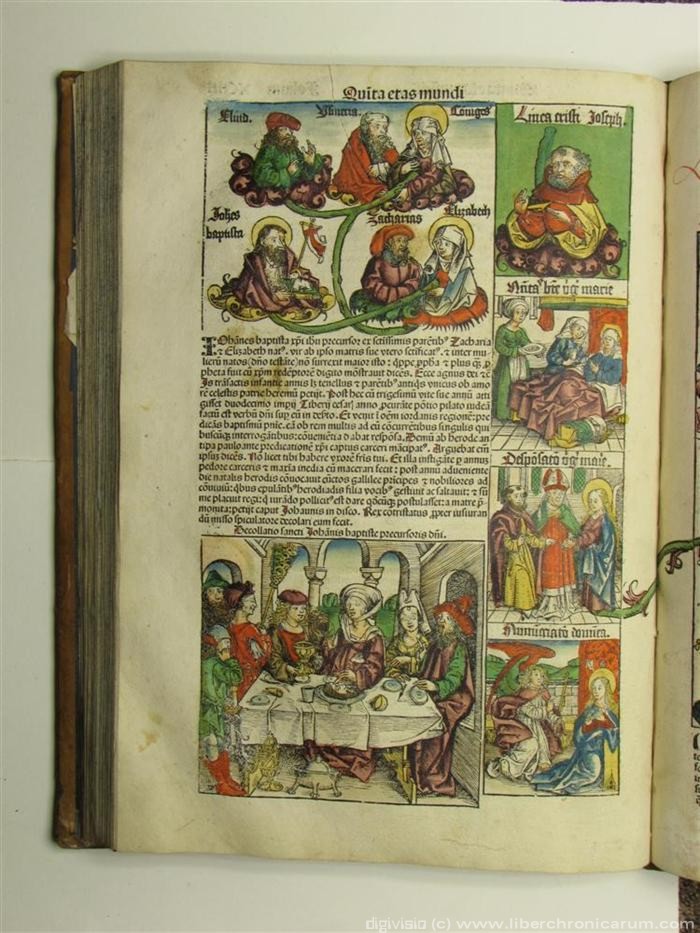 Quīta etas mundi
Eliud.
Ysmeria.
Coniugēs
Linea cristi Joseph.
Johēs
baptista
Zacharias
Elizabeth
Natāƺ btē vgīs marie
Johānes baptista xpi ihu precursor ex sctissimis parentibꝰ Zacharia
⁊ Elizabeth natꝰ. vir ab ipso matris sue vtero sctificatꝰ. ⁊ inter mu-
lierū natos (dño testāte) nō surrexit maior isto: qppe ꝓpha ⁊ plus qȝ ꝓ-
pheta fuit cū xpm redēptorē digito mōstrauit dicēs. Ecce agnus dei ⁊c̄
Is trāsactis infantie annis lȝ tenellus ⁊ parētibꝰ antiqs vnicus ob amo
rē celestis patrie heremū petijt. Post hec cū trigesimū vite sue annū atti
gisset duodecimo impij Tiberij cesaȝ anno ꝓcurāte pōtio pilato iudeā
factū est verbū dñi sup eū in deserto. Et venit ī oēm iordanis regionē: pre
dicās baptismū pnie. cū ob rem multis ad eū cōcurrētibus singulis qui
buscūqȝ interrogātibus: cōuenietia dabat respōsa. Demū ab herode an
tipa paulo ante predicationē xpi captus carceri mācipatꝰ. Arguebat eni
ipsū dicēs. Nō licet tibi habere vxorē fris tui. Et illa instigāte ꝑ annū
pedore carceris ⁊ maxia inedia cū macerari fecit: post annū adueniente
die natalis herodis cōuocauit cūctos gallilee prīcipes ⁊ nobiliores ad
cōuiuiū: qbus epulātibꝰ herodiadis filia vocibꝰ gestiuit ac saltauit: ⁊ sū
me placuit regi: q iurādo pollicitꝰ est dare qdcūqȝ postulasset: a matre p̄
monita: petijt caput Johannis in disco. Rex cōtristatus ꝓpter iusiuran
dū misso spiculatore decolari eum fecit.
Decollatio sancti Johānis baptiste precursoris dñi.
Desposatō vgīs marie.
Annūciatō dominica.
digivisio (c) www.liberchronicarum.com